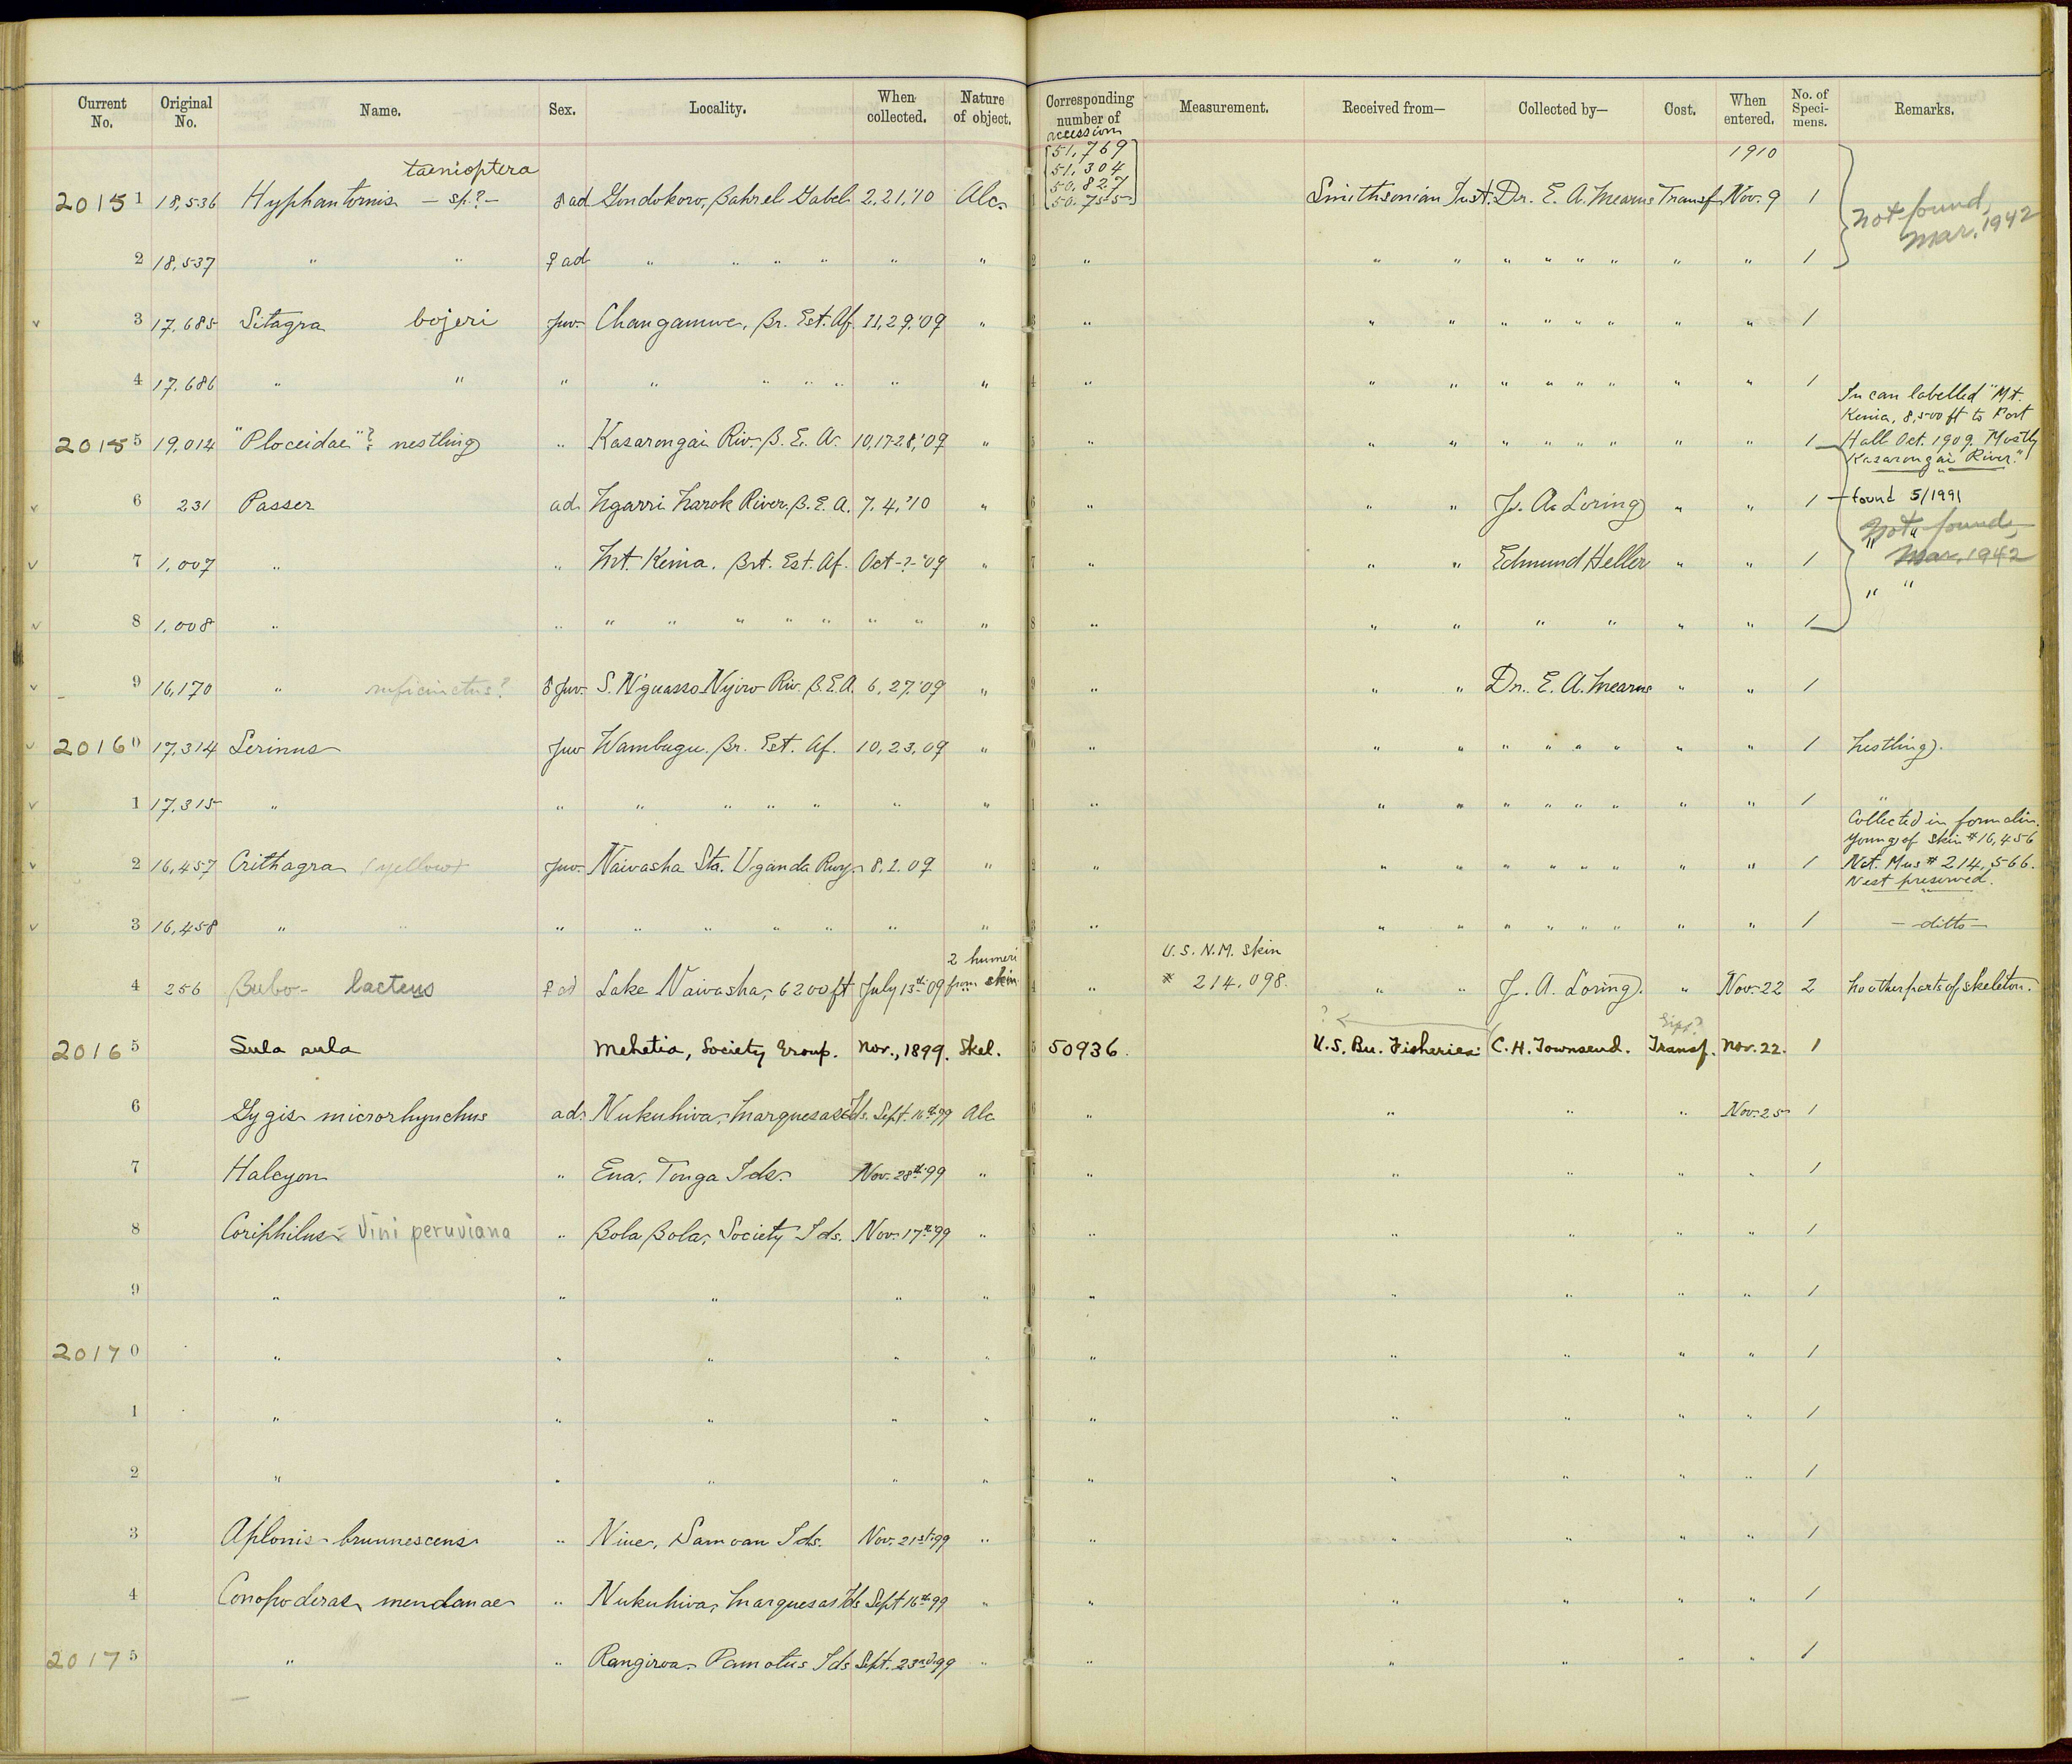 Current No. Original No. Name. Sex. Locality. When collected. Nature of object. Corresponding number of accession Measurement. Received from— Collected by— Cost. When entered. No. of Speci- mens. Remarks.
taenioptera [51,769 51,304 50,827 50,755] 1910
20151 18,536 Hyphantornis — sp.?— ♂ ad Gondokoro, Bahr el Gabel 2,21,'10 Alc. Smithsonian Inst. Dr. E. A. Mearns Transf. Nov. 9 1 Not found, Mar. 1942
2 18,537 " " ♀ ad " " " " " " " " " " " " " " " 1
3 17,685 Sitagra bojeri Juv. Changamwe, Br. Est. Af. 11,29,'09 " " " " " " " " " " 1
4 17,686 " " " " " " " " " " " " " " " " " " 1
20155 19,014 "Ploceidae"? nestling " Kasarongai Riv. B. E. A. 10,17-28,'09 " " " " " " " " " " 1 In can labelled "Mt. Kenia, 8,500 ft to Fort Hall Oct. 1909. Mostly Kasarongai River."
6 231 Passer ad. Ngarri Narok River, B. E. A. 7,4,'10 " " " " J. A. Loring " " 1 found 5/1991
Not found, Mar. 1942
7 1,007 " " Mt. Kenia. Brt. Est. Af. Oct-?-'09 " " " " Edmund Heller " " 1 " "
8 1,008 " " " " " " " " " " " " " " " " " 1 " "
9 16,170 " ruficinctus? ♂ Juv. S. N'guasso Nyiro Riv. B.E.A. 6,27,'09 " " " " Dr. E. A. Mearns " " 1
20160 17,314 Serinus Juv Wambugu. Br. Est. Af. 10,23,09 " " " " " " " " " " 1 Nestling.
1 17,315 " " " " " " " " " " " " " " " " " 1 "
2 16,457 Crithagra (yellow) Juv. Naivasha Sta. Uganda Rwy. 8.1.09 " " " " " " " " " " 1 Collected in formalin. Young of skin #16,456 Nat. Mus # 214,566. Nest preserved.
3 16,458 " " " " " " " " " " " " " " " " " " 1 — ditto —
4 256 Bubo lacteus ♀ ad Lake Naivasha, 6200 ft July 13th '09 2 humeri from skin " U.S.N.M. skin # 214,098. " " J. A. Loring. " Nov. 22 2 No other parts of skeleton.
20165 Sula sula Mehetia, Society Group. Nov., 1899. Skel. 50936. ? U.S. Bu. Fisheries. C.H. Townsend. Gift? Transf. Nov. 22. 1
6 Gygis microrhynchus ad. Nukuhiva, Marquesas Ids. Sept. 16th 99 Alc " " " " Nov. 25 1
7 Halcyon " Eua, Tonga Ids. Nov. 28th 99 " " " " " " 1
8 Coriphilus = Vini peruviana " Bola Bola, Society Ids. Nov. 17th 99 " " " " " " 1
9 " " " " " " " " " " 1
20170 " " " " " " " " " " 1
1 " " " " " " " " " " 1
2 " " " " " " " " " " 1
3 Aplonis brunnescens " Niue, Samoan Ids. Nov. 21st 99 " " " " " " 1
4 Conopoderas mendanae " Nukuhiva, Marquesas Ids Sept 16th 99 " " " " " " 1
20175 " " Rangiroa, Pamotus Ids Sept. 23rd 99 " " " " " " 1